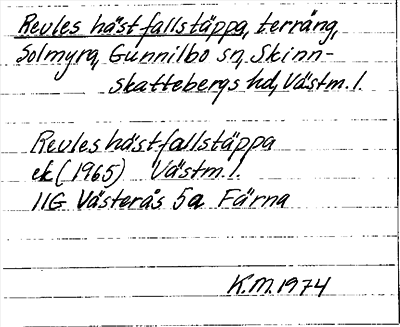 Reules hästfallstäppa, terräng,
Solmyra, Gunnilbo sn, Skinn-
skattebergs hd, Västm. l.
Reules hästfallstäppa
ek (1965) Västm. l.
11G Västerås 5a Färna
K.M. 1974